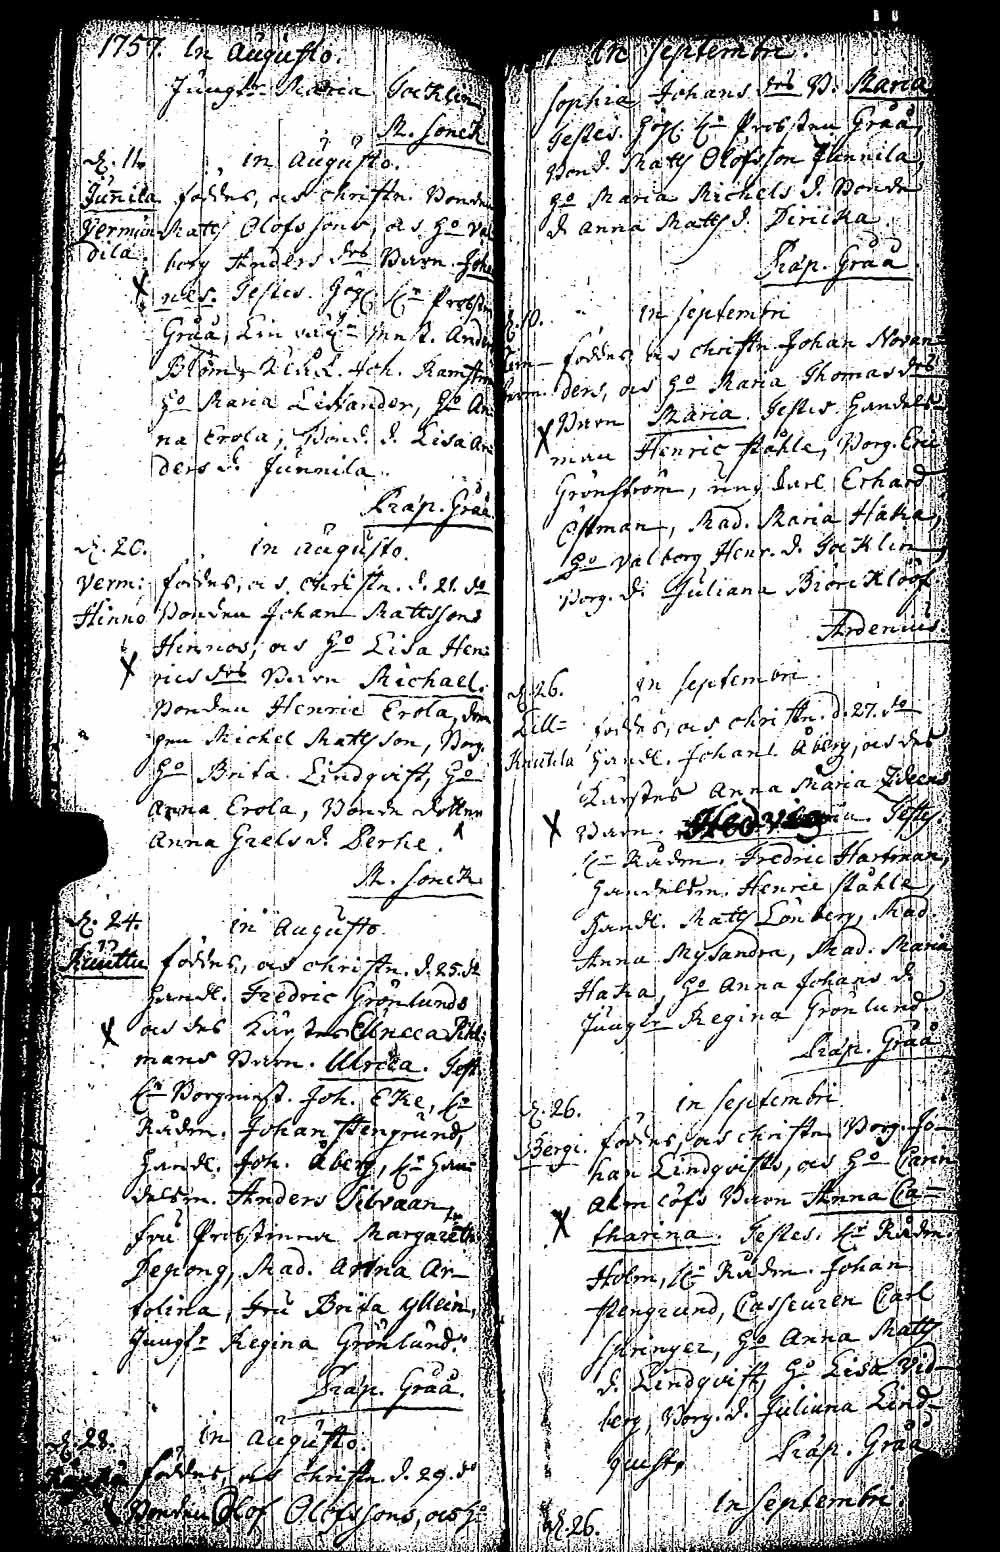 1757. In Augusto.
Jungfr. Maria Jacklin
M. Sonck
D. 11.
in Augusto.
Junnila föddes, och christn. Bonden
Matts Olofssons, och H:o Val
borg Anders drs Barn Joha
nnes. Testes. Hög. H:r Probsten
Gråå,
Blom,
H:o Maria Lexander, H:o An
na Erola, Bond. d. Lisa An
ders d. Junnila.
Præp. Gråå.
D. 20.
in Augusto.
Verm: föddes, och christn. d. 21. do
Hinno Bonden Johan Mattssons
Hinnos, och H:o Lisa Hen
rics drs Barn Michael.
Bonden Henric Erola,
Michel Mattsson, Borg.
H:o Brita Lindqvist, H:o
Anna Erola, Bonde dotter
Anna Grels d. Perhe.
M. Sonck
D. 24.
in Augusto
föddes, och christn. d. 25. do
Handl. Fredric Grönlunds
och des Kärestes Ulricca
mans Barn. Ulrica. Test.
H:r Borgmest. Joh. Eke, H:r
Rådm. Johan Stengrund,
Handl. Joh. Åberg, H:r Han
delsm. Anders Silvaan,
Fru Probstinnan Margaretha
Depiong, Mad. Anna Ar-
tolina, Fru Brita Yllein,
Jungfr Regina Grönlund.
Præp. Gråå.
D. 28.
in Augusto.
föddes, och Christn. d. 29. do
Bonden Olof Olofssons, och H:o
In Septembri.
Sophia Johans drs B. Maria
Testes. Hög. H:r Probsten Gråå,
Bond. Matts Olofsson Junnila,
H:o Maria Michels d. Bonde
d. Anna Matts d. Piricka
Præp. Gråå
D. 10.
in Septembri
föddes, och christn. Johan Novan-
ders, och H:o Maria Thomas drs
Barn Maria. Testes. Handels-
man Henric Ståhle, Borg. Eric
Grönström, ung Karl Erhard
Öttman, Mad. Maria Haka,
H:o Valborg Henr. d. Jacklin,
Borg. d. Juliana Biörcklööf
Ardenius.
D. 26.
in Septembri
Lill= föddes, och christn. d. 27. do
Handl. Johan Åberg, och des
Kärestes Anna Maria Idecus
Barn. Hedvig Testes.
H:r Rådm. Fredric Hartman,
Handelsm. Henric Ståhle,
Handl. Matts Lönberg, Mad.
Anna Mysandra, Mad. Maria
Haka, H:o Anna Johans d.
Jungfr Regina Grönlund.
Præp. Gråå
D. 26.
in Septembri
Bergi. föddes, och christn. Borg. Jo-
han Lindqvists, och H:o Carin
Almlöfs Barn Anna Ca-
tharina. Testes. H:r Rådm.
Holm, H:r Rådm. Johan
Stengrund, Casseuren Carl
Springer, H:o Anna Matts
d. Lindqvist, H:o Lisa Vid-
berg, Borg. d. Juliana Lind-
quist.
Præp. Gråå
In Septembri.
D. 26.